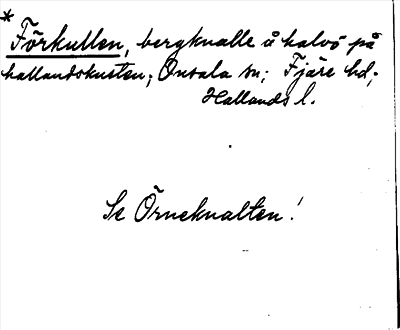 *
Förkullen, bergknalle å halvö på
hallandskusten; Onsala sn; Fjäre hd;
Hallands l.
Se Örneknalten!